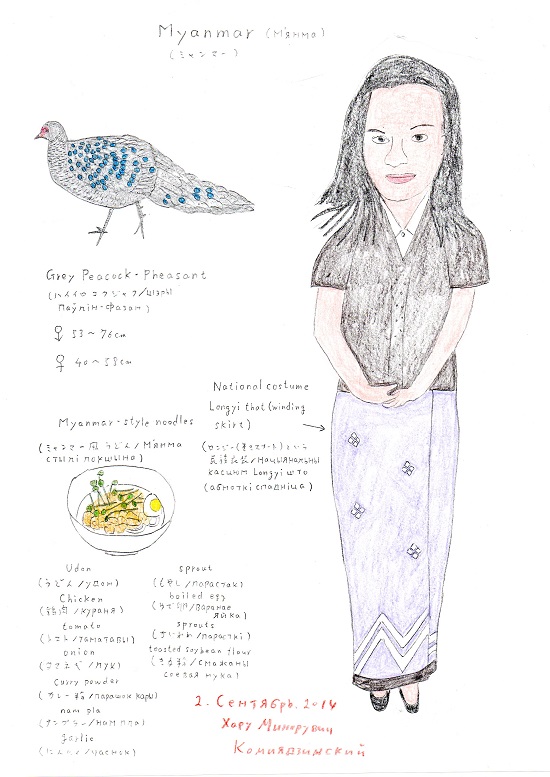 Myanmar (М'янма)
(ミャンマー)
Grey Peacock-Pheasant
(ハイイロコクジャク/шэры
паўлін-фазан)
♂ 53〜76cm
♀ 40〜58cm
National costume
Longyi that (winding
skirt)
(ロンジー(巻きスカート)という
民族衣装/нацыянальны
касцюм Longyi што
(абмоткі спадніца)
Myanmar-style noodles
(ミャンマー風うどん/М'янма
стылі локшына)
Udon
(うどん/удон)
Chicken
(鶏肉/кураня)
tomato
(トマト/таматавы)
onion
(タマネギ/лук)
Curry powder
(カレー粉/парашок кары)
nam pla
(ナンプラー/нам пла)
garlic
(にんにく/часнок)
sprout
(もやし/парастак)
boiled egg
(ゆで卵/варанае
яйка)
sprouts
(かいわれ/парасткі)
toasted soybean flour
(きな粉/смажаны
соевая мука)
2. Сентябрь. 2014
Хару Минорувич
Комиядзинский